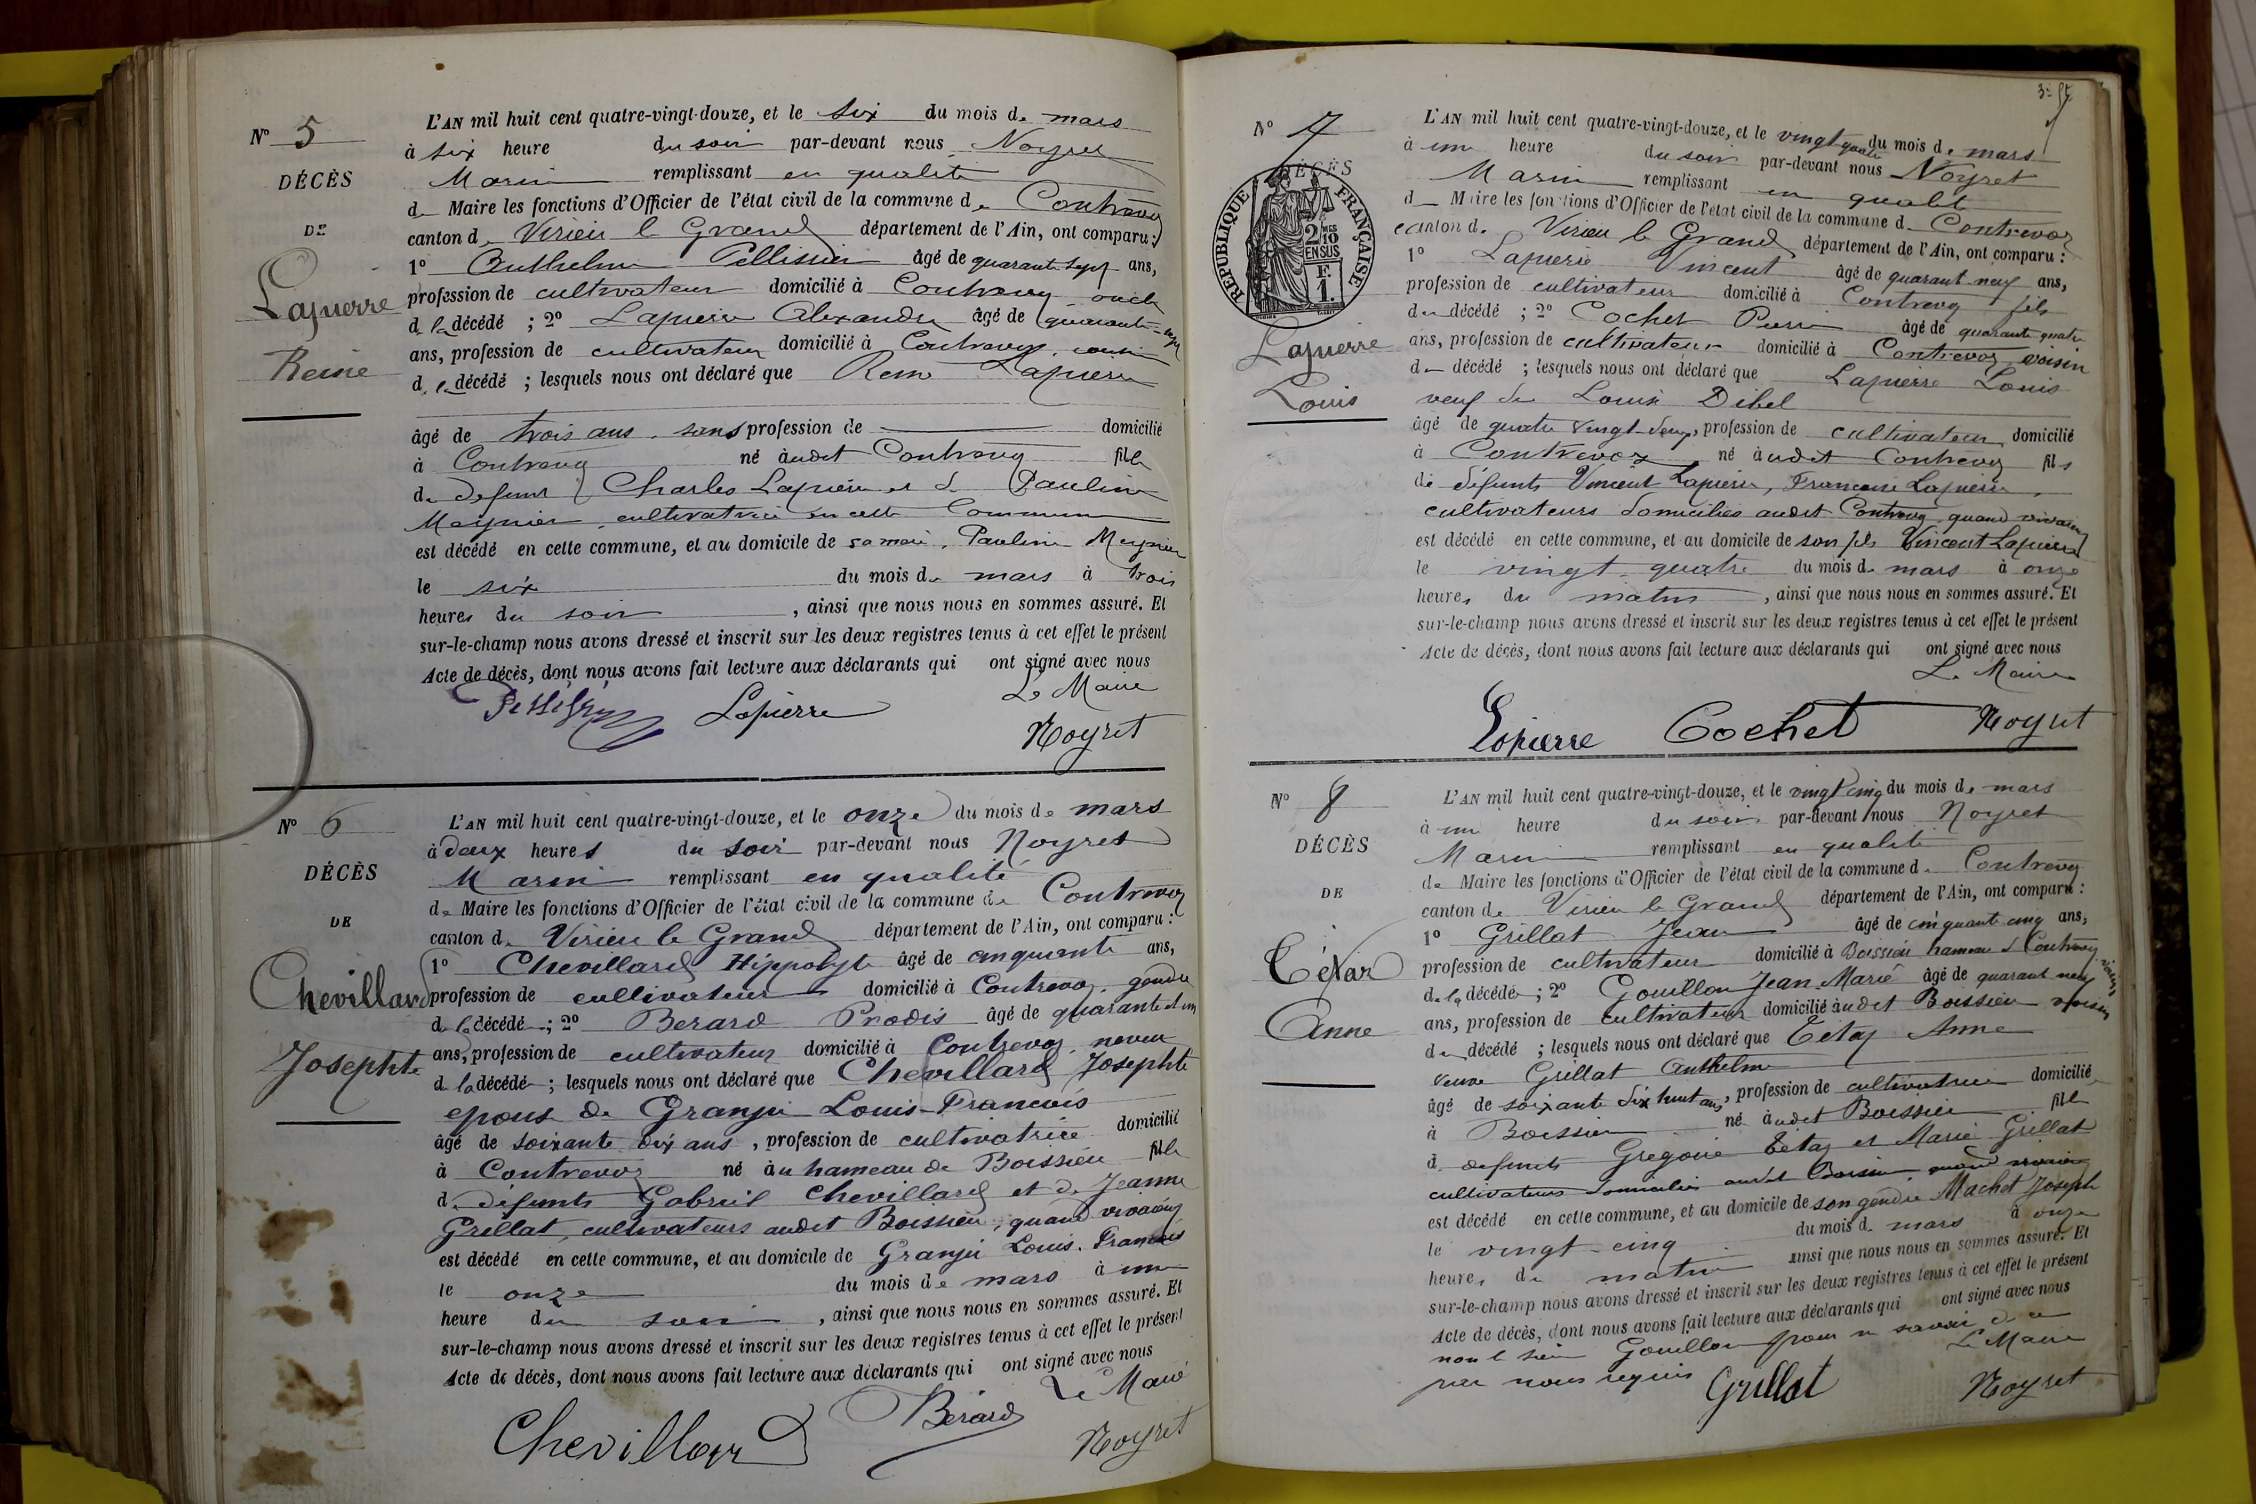 N° 5
DÉCÈS
DE
Lapierre
Reine
L'AN mil huit cent quatre-vingt-douze, et le six du mois de mars
à six heure du soir par-devant nous Noyret
Marin remplissant en qualité
de Maire les fonctions d'Officier de l'état civil de la commune de Contrevoz
canton de Virieu le Grand département de l'Ain, ont comparu :
1° Anthelme Pellisier âgé de quarante sept ans,
profession de cultivateur domicilié à Contrevoz oncle
d la décédé ; 2° Lapierre Alexandre âgé de quarante-
ans, profession de cultivateur domicilié à Contrevoz, cousin
d la décédé ; lesquels nous ont déclaré que Reine Lapierre
âgé de trois ans, sans profession de domicilié
à Contrevoz né àudit Contrevoz fille
de defunt Charles Lapierre et de Pauline
Meynier, cultivatrice en cette Commune
est décédé en cette commune, et au domicile de sa mère, Pauline Meynier
le six du mois de mars à trois
heures du soir , ainsi que nous nous en sommes assuré. Et
sur-le-champ nous avons dressé et inscrit sur les deux registres tenus à cet effet le présent
Acte de décès, dont nous avons fait lecture aux déclarants qui ont signé avec nous
Le Maire
Lapierre
Noyret
N° 6
DÉCÈS
DE
Chevillard
Josephte
L'AN mil huit cent quatre-vingt-douze, et le onze du mois de mars
à deux heures du soir par-devant nous Noyret
Marin remplissant en qualité
de Maire les fonctions d'Officier de l'état civil de la commune de Contrevoz
canton de Virieu le Grand département de l'Ain, ont comparu :
1° Chevillard Hippolyte âgé de cinquante ans,
profession de cultivateur domicilié à Contrevoz, gendre
d la décédé ; 2° Berard Prodis âgé de quarante et un
ans, profession de cultivateur domicilié à Contrevoz, neveu
d la décédé ; lesquels nous ont déclaré que Chevillard Josephte
epouse de Granju Louis-Francois
âgé de soixante dix ans , profession de cultivatrice domicilié
à Contrevoz né àu hameau de Boissieu fille
de défunts Gabriel Chevillard et de Jeanne
Grillat, cultivateurs audit Boissieu, quand vivaient
est décédé en cette commune, et au domicile de Granju Louis-Francois
le onze du mois de mars à une
heure du soir , ainsi que nous nous en sommes assuré. Et
sur-le-champ nous avons dressé et inscrit sur les deux registres tenus à cet effet le présent
Acte de décès, dont nous avons fait lecture aux déclarants qui ont signé avec nous
Le Maire
Chevillard Bérard
Noyret
N° 7
DÉCÈS
RÉPUBLIQUE FRANÇAISE
2/10
EN SUS
F.
1.
Lapierre
Louis
L'AN mil huit cent quatre-vingt-douze, et le vingt quatre du mois de mars
à une heure du soir par-devant nous Noyret
Marin remplissant en qualité
d Maire les fonctions d'Officier de l'état civil de la commune d Contrevoz
canton d. Virieu le Grand département de l'Ain, ont comparu :
1° Lapierre Vincent âgé de quarante neuf ans,
profession de cultivateur domicilié à Contrevoz fils
du décédé ; 2° Cochet Pierre âgé de quarante quatre
ans, profession de cultivateur domicilié à Contrevoz, voisin
du décédé ; lesquels nous ont déclaré que Lapierre Louis
veuf de Louise Dibel
âgé de quatre vingt deux, profession de cultivateur domicilié
à Contrevoz né àudit Contrevoz fils
de défunts Vincent Lapierre, Francoise Lapierre,
cultivateurs domiciliés audit Contrevoz, quand vivaient
est décédé en cette commune, et au domicile de son fils Vincent Lapierre
le vingt-quatre du mois de mars à onze
heures du matin , ainsi que nous nous en sommes assuré. Et
sur-le-champ nous avons dressé et inscrit sur les deux registres tenus à cet effet le présent
Acte de décès, dont nous avons fait lecture aux déclarants qui ont signé avec nous
Le Maire
Lapierre Cochet Noyret
N° 8
DÉCÈS
DE
Tétaz
Anne
L'AN mil huit cent quatre-vingt-douze, et le vingt cinq du mois de mars
à une heure du soir par-devant nous Noyret
Marin remplissant en qualité
de Maire les fonctions d'Officier de l'état civil de la commune d. Contrevoz
canton de Virieu le Grand département de l'Ain, ont comparu :
1° Grillat Jean âgé de cinquante cinq ans,
profession de cultivateur domicilié à Boissieu hameau de Contrevoz, voisin
de la décédé ; 2° Gouillon Jean-Marie âgé de quarante neuf
ans, profession de cultivateur domicilié àudit Boissieu voisin
de décédé ; lesquels nous ont déclaré que Tetaz Anne
veuve Grillat Anthelme
âgé de soixante dix huit ans, profession de cultivatrice domicilié
à Boissieu né àudit Boissieu fille
d. defunts Gregoire Tetaz et Marie Grillat
cultivateurs domiciliés audit Boissieu, quand vivaient
est décédé en cette commune, et au domicile de son gendre Machet Joseph
le vingt-cinq du mois d. mars à onze
heures du matin ainsi que nous nous en sommes assuré. Et
sur-le-champ nous avons dressé et inscrit sur les deux registres tenus à cet effet le présent
Acte de décès, dont nous avons fait lecture aux déclarants qui ont signé avec nous
non le sieur Gouillon pour ne savoir de ce
par nous requis Le Maire
Grillat Noyret